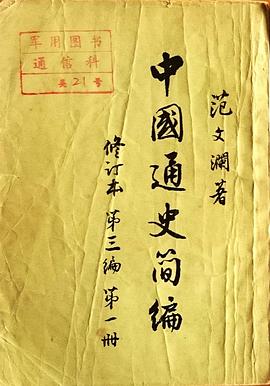 范文瀾著
中國通史简编
修订本 第三編 第一册
军用图书
通信科
共21号